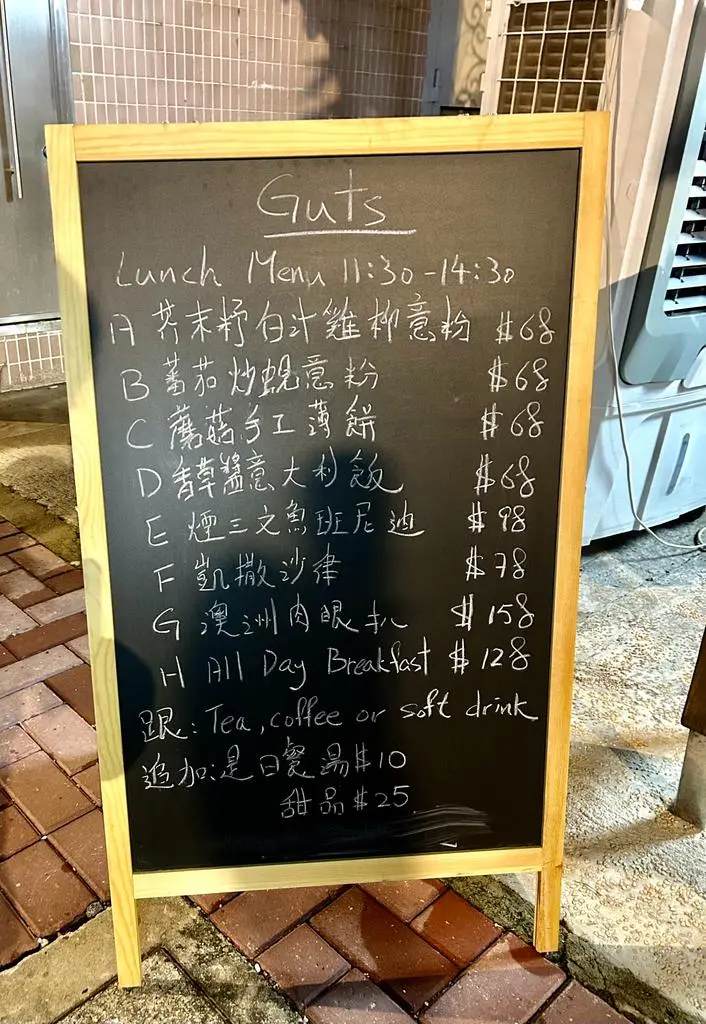 Guts
Lunch Menu 11:30-14:30
A 芥末籽白汁雞柳意粉 $68
B 蕃茄炒蜆意粉 $68
C 蘑菇手工薄餅 $68
D 香草醬意大利飯 $68
E 煙三文魚班尼迪 $98
F 凱撒沙律 $78
G 澳洲肉眼扒 $158
H All Day Breakfast $128
跟: Tea, coffee or soft drink
追加:是日餐湯$10
甜品$25